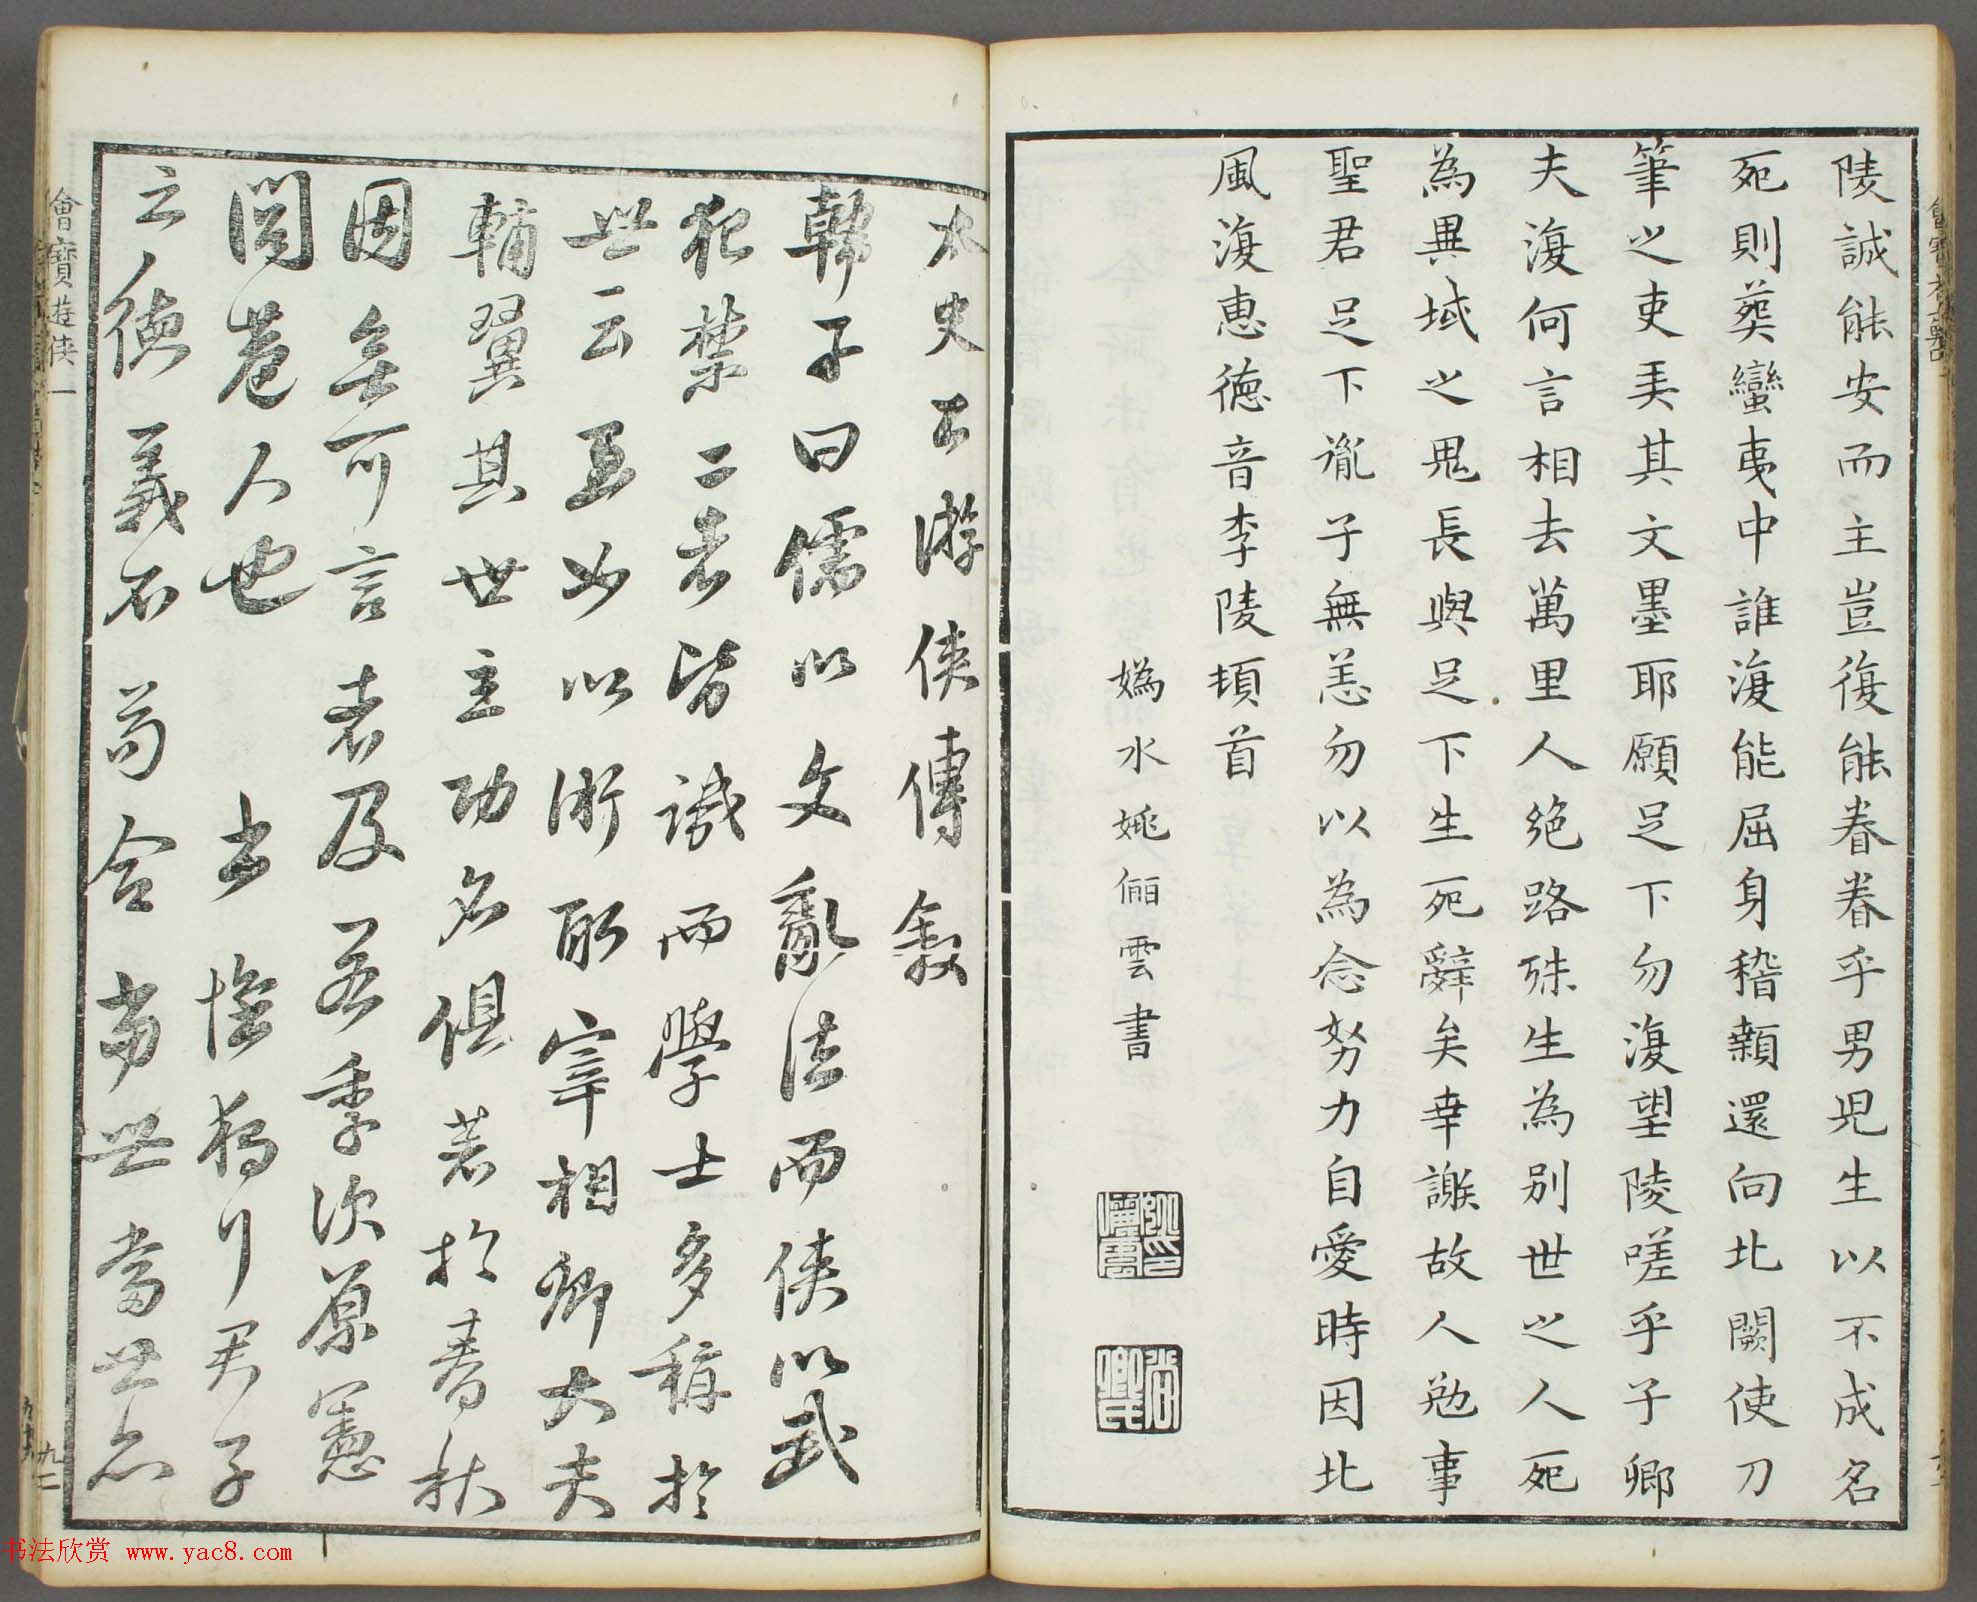 陵誠能安而主豈復能眷眷乎男児生以不成名
死則葬蠻夷中誰復能屈身稽顙還向北闕使刀
筆之吏弄其文墨耶願足下勿復望陵嗟乎子卿
夫復何言相去萬里人絶路殊生為别世之人死
為異域之鬼長與足下生死辭矣幸謝故人勉事
聖君足下胤子無恙勿以為念努力自愛時因北
風復惠德音李陵頓首
媯水姚儷雲書
太史公游俠傳叙
韓子曰儒以文亂法而俠以武
犯禁二者皆譏而學士多稱於
世云至如以術取宰相卿大夫
輔翼其世主功名俱著於春秋
固無可言者及若季次原憲
閭巷人也 書懷獨行君子
之德義不苟合當世當世亦
會寶遊俠一
九二
书法欣赏 www.yac8.com